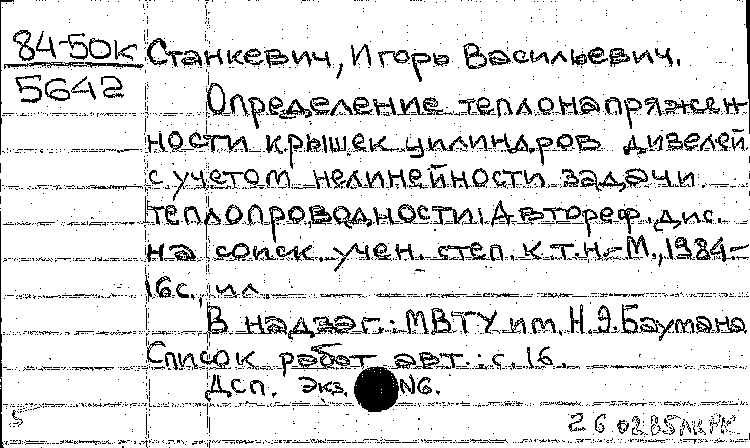 84-50к Станкевич, Игорь Васильевич.
5642
Определение теплонапряжен-
ности крышек цилиндров дизелей
с учетом нелинейности задачи
теплопроводности: Автореф. дис.
на соиск. учен. степ. к.т.н.-М., 1984-
16с., ил.
В надзаг.: МВТУ им. Н.Э.Баумана
Список работ авт.: с.16.
ДСП. Экз. N6.
5